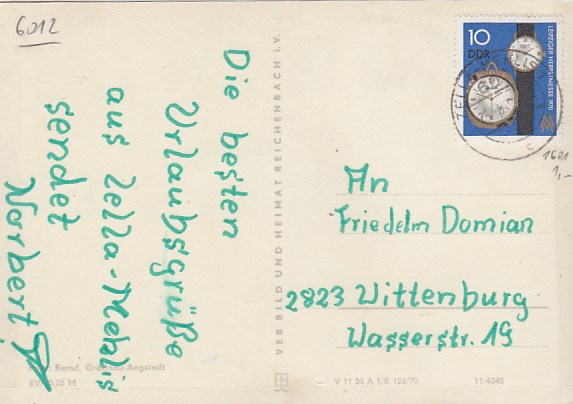 6012
Die besten
Urlaubsgrüße
aus Zella-Mehlis
sendet
Norbert
VEB BILD UND HEIMAT REICHENBACH i.V.
Remd, Angstedt
EVP 0,25 M
V 11 50 A 1/B 126/70
11/4345
10
DDR
LEIPZIGER HERBSTMESSE 1970
MM
ZELLA
c
1621
1,-
An
Friedelm Domian
2823 Wittenburg
Wasserstr. 19